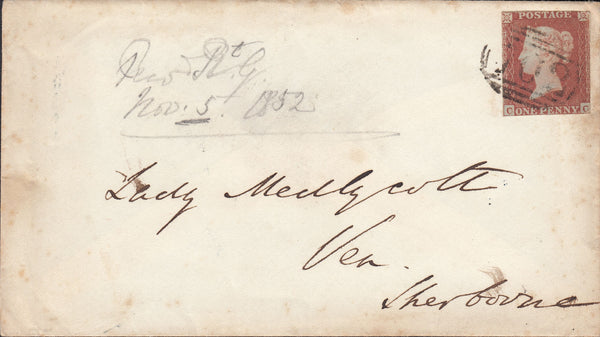 POSTAGE
C C
ONE PENNY
Nov. 5. 1852
Lady Medlycott
Ven.
Sherborne